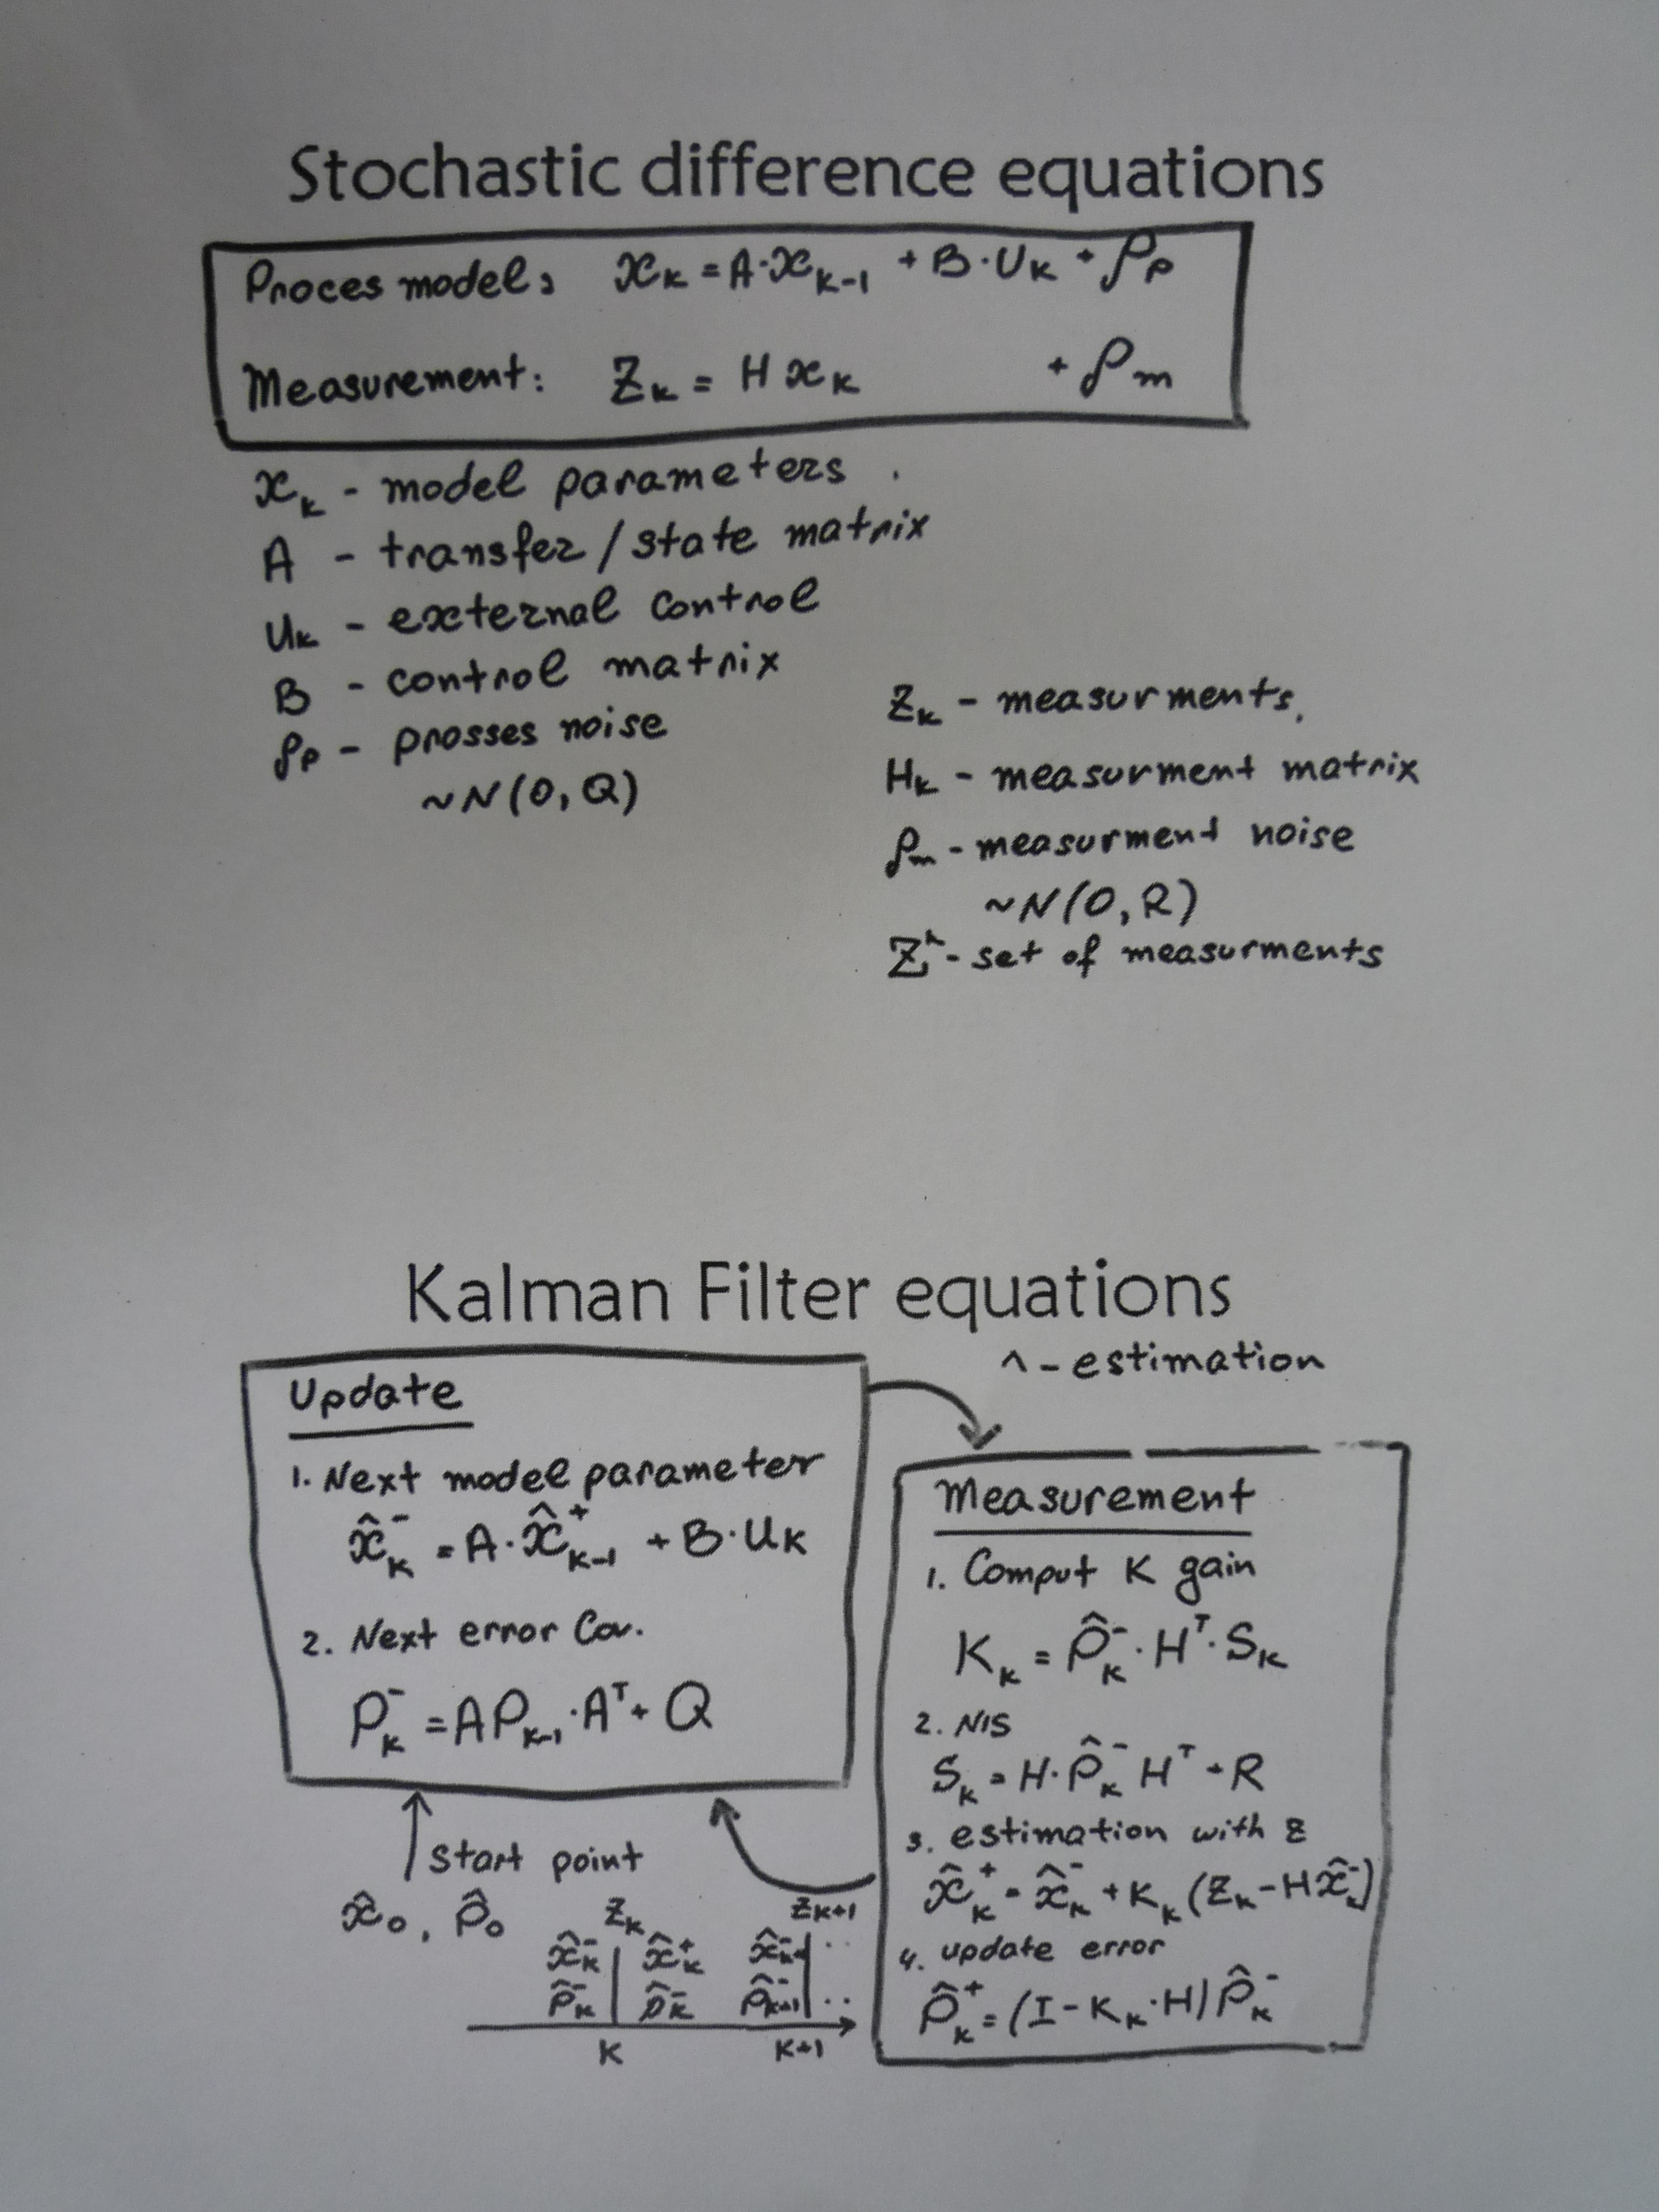 Stochastic difference equations
Proces model: x_k = A·x_{k-1} + B·U_k + ρ_p
Measurement: Z_k = H x_k + ρ_m
x_k - model parameters.
A - transfer/state matrix
U_k - external control
B - control matrix
ρ_p - prosses noise
~N(0, Q)
Z_k - measurments,
H_k - measurment matrix
ρ_m - measurment noise
~N(0, R)
Z^k - set of measurments
Kalman Filter equations
^ - estimation
Update
1. Next model parameter
x̂_k^- = A·x̂_{k-1}^+ + B·U_k
2. Next error Cov.
P_k^- = A P_{k-1}·A^T + Q
Start point
x̂_0, P̂_0
Z_k Z_{k+1}
x̂_k^- x̂_k^+ x̂_{k+1}^- ..
P̂_k^- P̂_k^- P̂_{k+1}^- ..
K K+1
Measurement
1. Comput K gain
K_k = P̂_k^-·H^T·S_k
2. NIS
S_k = H·P̂_k^- H^T + R
3. estimation with z
x̂_k^+ = x̂_k^- + K_k (Z_k - H x̂_k^-)
4. update error
P̂_k^+ = (I - K_k·H) P̂_k^-